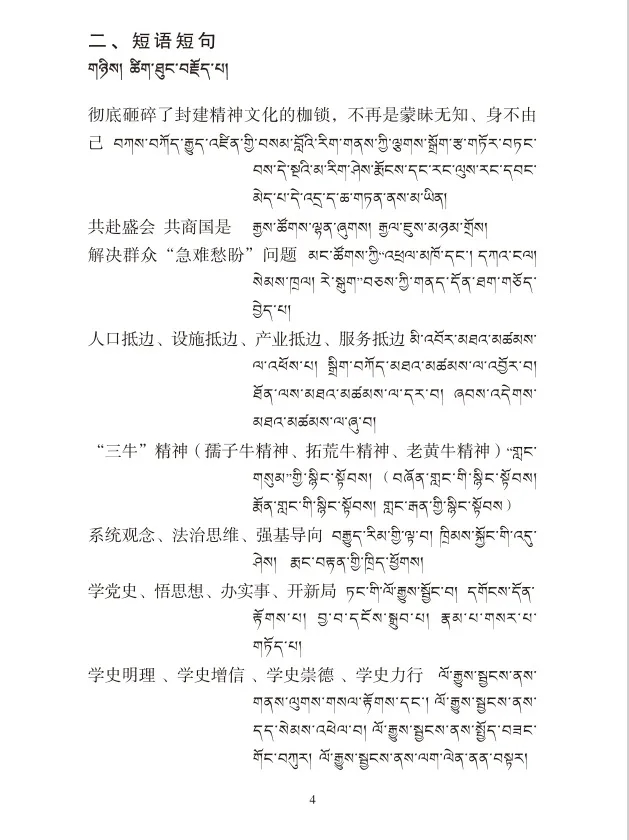 二、短语短句
གཉིས། ཚིག་ཐུང་བརྗོད་པ།
彻底砸碎了封建精神文化的枷锁，不再是蒙昧无知、身不由
己 བཀས་བཀོད་རྒྱུད་འཛིན་གྱི་བསམ་བློའི་རིག་གནས་ཀྱི་ལྕགས་སྒྲོག་རྩ་གཏོར་བཏང་
བས་དེ་སྔའི་མ་རིག་ཤེས་རྨོངས་དང་རང་ལུས་རང་དབང་
མེད་པ་དེ་འདྲ་ད་ཆ་གཏན་ནས་མ་ཡིན།
共赴盛会 共商国是 རྒྱས་ཚོགས་ལྷན་ཞུགས། རྒྱལ་ཇུས་མཉམ་གྲོས།
解决群众“急难愁盼”问题 མང་ཚོགས་ཀྱི་“འཕྲལ་མཁོ་དང་། དཀའ་ངལ།
སེམས་ཁྲལ། རེ་སྒུག”བཅས་ཀྱི་གནད་དོན་ཐག་གཅོད་
བྱེད་པ།
人口抵边、设施抵边、产业抵边、服务抵边 མི་འབོར་མཐའ་མཚམས་
ལ་འཕོས་པ། སྒྲིག་བཀོད་མཐའ་མཚམས་ལ་འབྱོར་བ།
ཐོན་ལས་མཐའ་མཚམས་ལ་དར་བ། ཞབས་འདེགས་
མཐའ་མཚམས་ལ་ཞུ་བ།
“三牛”精神（孺子牛精神、拓荒牛精神、老黄牛精神）“གླང་
གསུམ”གྱི་སྙིང་སྟོབས། （བཞོན་གླང་གི་སྙིང་སྟོབས།
རྨོན་གླང་གི་སྙིང་སྟོབས། གླང་རྒན་གྱི་སྙིང་སྟོབས）
系统观念、法治思维、强基导向 བརྒྱུད་རིམ་གྱི་ལྟ་བ། ཁྲིམས་སྐྱོང་གི་འདུ་
ཤེས། རྨང་བརྟན་གྱི་ཁྲིད་ཕྱོགས།
学党史、悟思想、办实事、开新局 ཏང་གི་ལོ་རྒྱུས་སྦྱོང་བ། དགོངས་དོན་
རྟོགས་པ། བྱ་བ་དངོས་སྒྲུབ་པ། རྣམ་པ་གསར་པ་
གཏོད་པ།
学史明理 、学史增信 、学史崇德 、学史力行 ལོ་རྒྱུས་སྦྱངས་ནས་
གནས་ལུགས་གསལ་རྟོགས་དང་། ལོ་རྒྱུས་སྦྱངས་ནས་
དད་སེམས་འཕེལ་བ། ལོ་རྒྱུས་སྦྱངས་ནས་སྤྱོད་བཟང་
གོང་བཀུར། ལོ་རྒྱུས་སྦྱངས་ནས་ལག་ལེན་ནན་བསྟར།
4